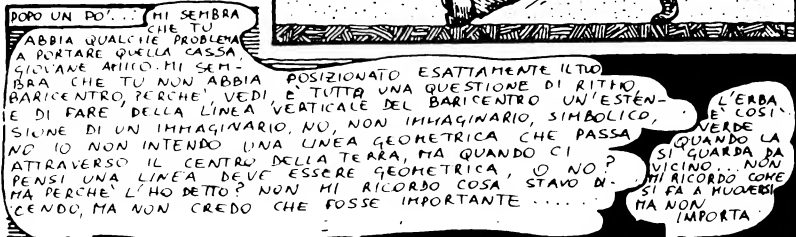 DOPO UN PO'....
MI SEMBRA
CHE TU
ABBIA QUALCHE PROBLEMA
A PORTARE QUELLA CASSA,
GIOVANE AMICO. MI SEM-
BRA CHE TU NON ABBIA POSIZIONATO ESATTAMENTE IL TUO
BARICENTRO, PERCHE', VEDI, E' TUTTA UNA QUESTIONE DI RITMO,
E DI FARE DELLA LINEA VERTICALE DEL BARICENTRO UN'ESTEN-
SIONE DI UN IMMAGINARIO, NO, NON IMMAGINARIO, SIMBOLICO,
NO IO NON INTENDO UNA LINEA GEOMETRICA CHE PASSA
ATTRAVERSO IL CENTRO DELLA TERRA, MA QUANDO CI
PENSI UNA LINEA DEVE ESSERE GEOMETRICA, O NO?
MA PERCHE' L'HO DETTO? NON MI RICORDO COSA STAVO DI-
CENDO, MA NON CREDO CHE FOSSE IMPORTANTE ......
L'ERBA
E' COSI'
VERDE
QUANDO LA
SI GUARDA DA
VICINO... NON
MI RICORDO COME
SI FA A MUOVERSI
MA NON
IMPORTA.